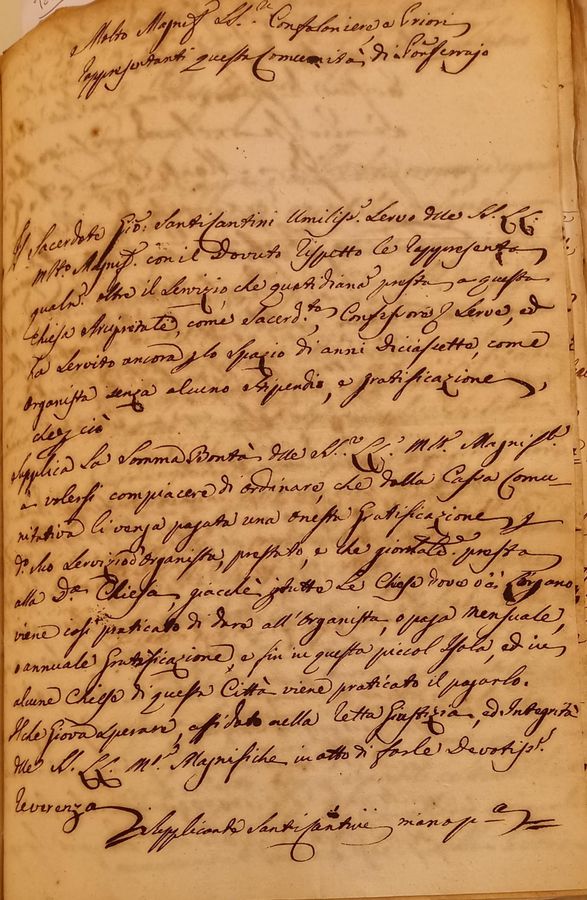 Molto Magnif.ci SS.ri Confaloniere e Priori
rappresentanti questa Comunità di Portoferrajo
Il Sacerdote Gio: Santi Santini Umiliss.o Servo delle SS. LL.
Mtto Magnif. con il Dovuto rispetto le rappresenta
qualm.e oltre il servizio, che quotidiana.te presta a questa
Chiesa Arcipretale, come Sacerd.te, Confessore, Serve, ed
ha servito ancora p lo spazio di anni diciasette, come
Organista senza alcuno stipendio, e gratificazione,
che p ciò
Supplica La Somma Bontà delle SS.rie LL. Mtt. Magnif.
a volersi compiacere di ordinare, che dalla Cassa Comu-
nitativa li venga pagata una onesta Gratificazione p
d.o suo Servizio d'Organista, prestato, e che giornalm.e presta
alla D.a Chiesa giacchè p tutte Le Chiese dove v'è L'organo
viene così praticato di dare all'Organista, o paga mensuale,
o annuale Gratificazione, e fin in questa piccol Isola, ed in
alcune Chiese di questa Città viene praticato il pagarlo.
Il che Giova sperare, affidato nella retta Giustizia, ed Integrità
delle SS. LL. M.to Magnifiche in atto di farle Devotiss.a
reverenza
Supplicante Santi Santini mano p.a